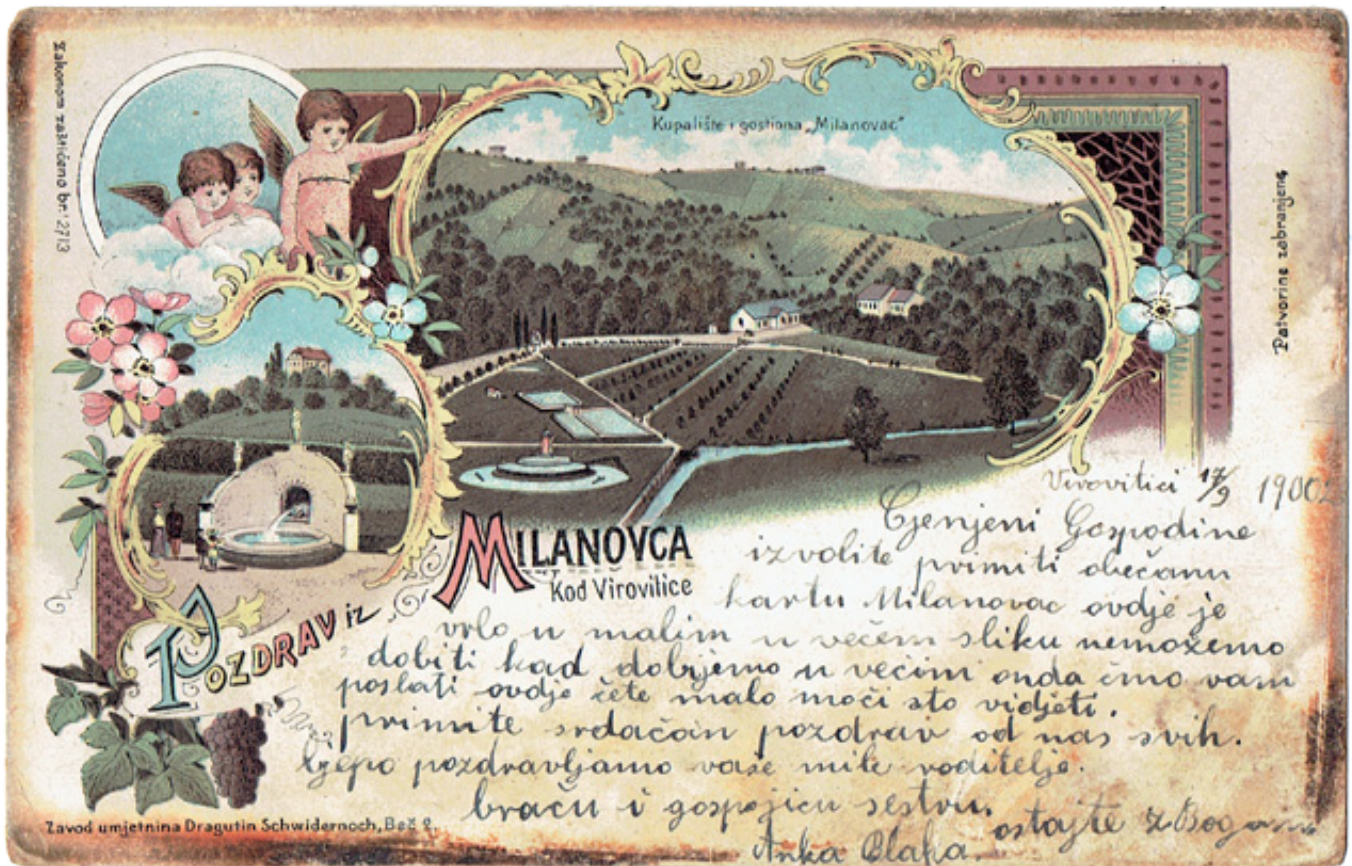 Zakonom zaštićeno br. 2713
Kupalište i gostiona „Milanovac"
Patvorine zabranjene
Pozdrav iz
Milanovca
Kod Virovitice
Virovitici 17/9 1900.
Cjenjeni Gospodine
izvolite primiti obećanu
kartu Milanovac ovdje je
vrlo u malim u većem sliku nemožemo
dobiti kad dobijemo u većim onda ćmo vam
poslati ovdje ćete malo moći što vidjeti.
primite srdačan pozdrav od nas svih.
ljepo pozdravljamo vaše mile roditelje.
braću i gospojicu sestru.
ostajte z Bogom
Anka Blaha.
Zavod umjetnina Dragutin Schwidernoch, Beč 2.